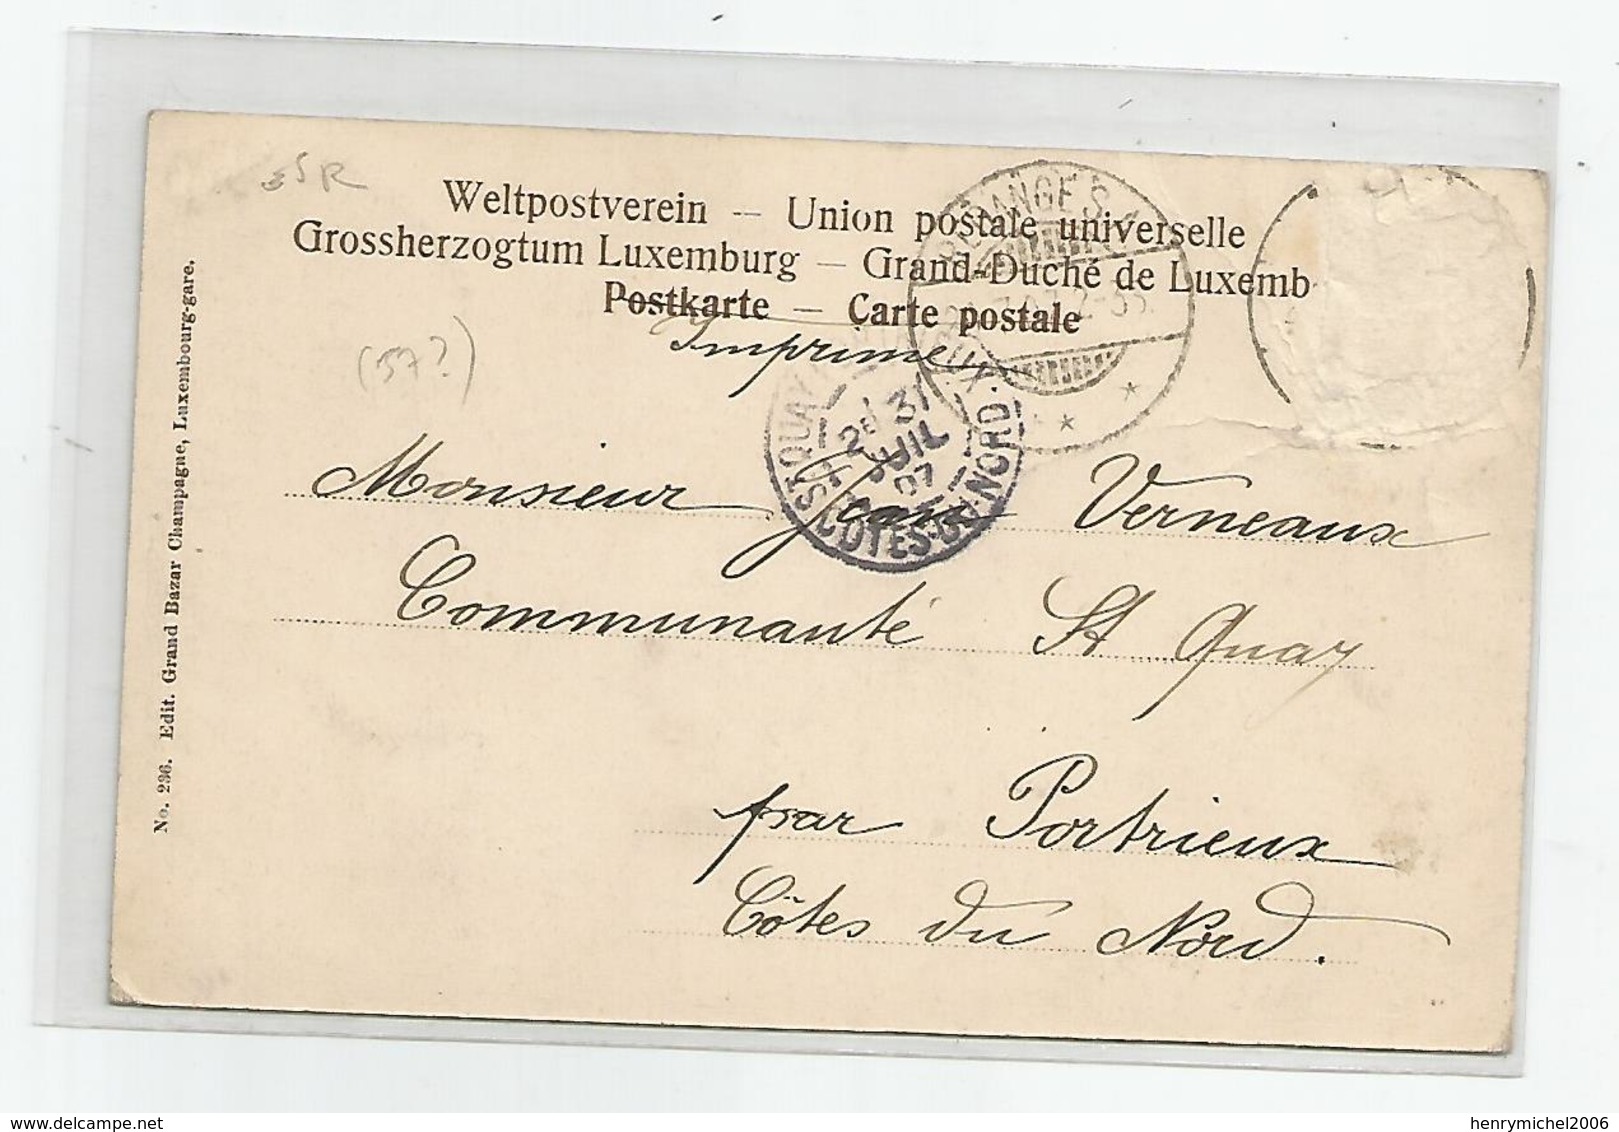 SR
Weltpostverein — Union postale universelle
Grossherzogtum Luxemburg — Grand-Duché de Luxemb
Postkarte — Carte postale
Imprimé
(57?)
2E 31
JUIL
07
CÔTES-DU-NORD
Monsieur Jean Verneaux
Communauté St Quay
par Portrieux
Côtes du Nord.
No. 236. Edit. Grand Bazar Champagne, Luxembourg-gare.
delcampe.net
henrymichel2006